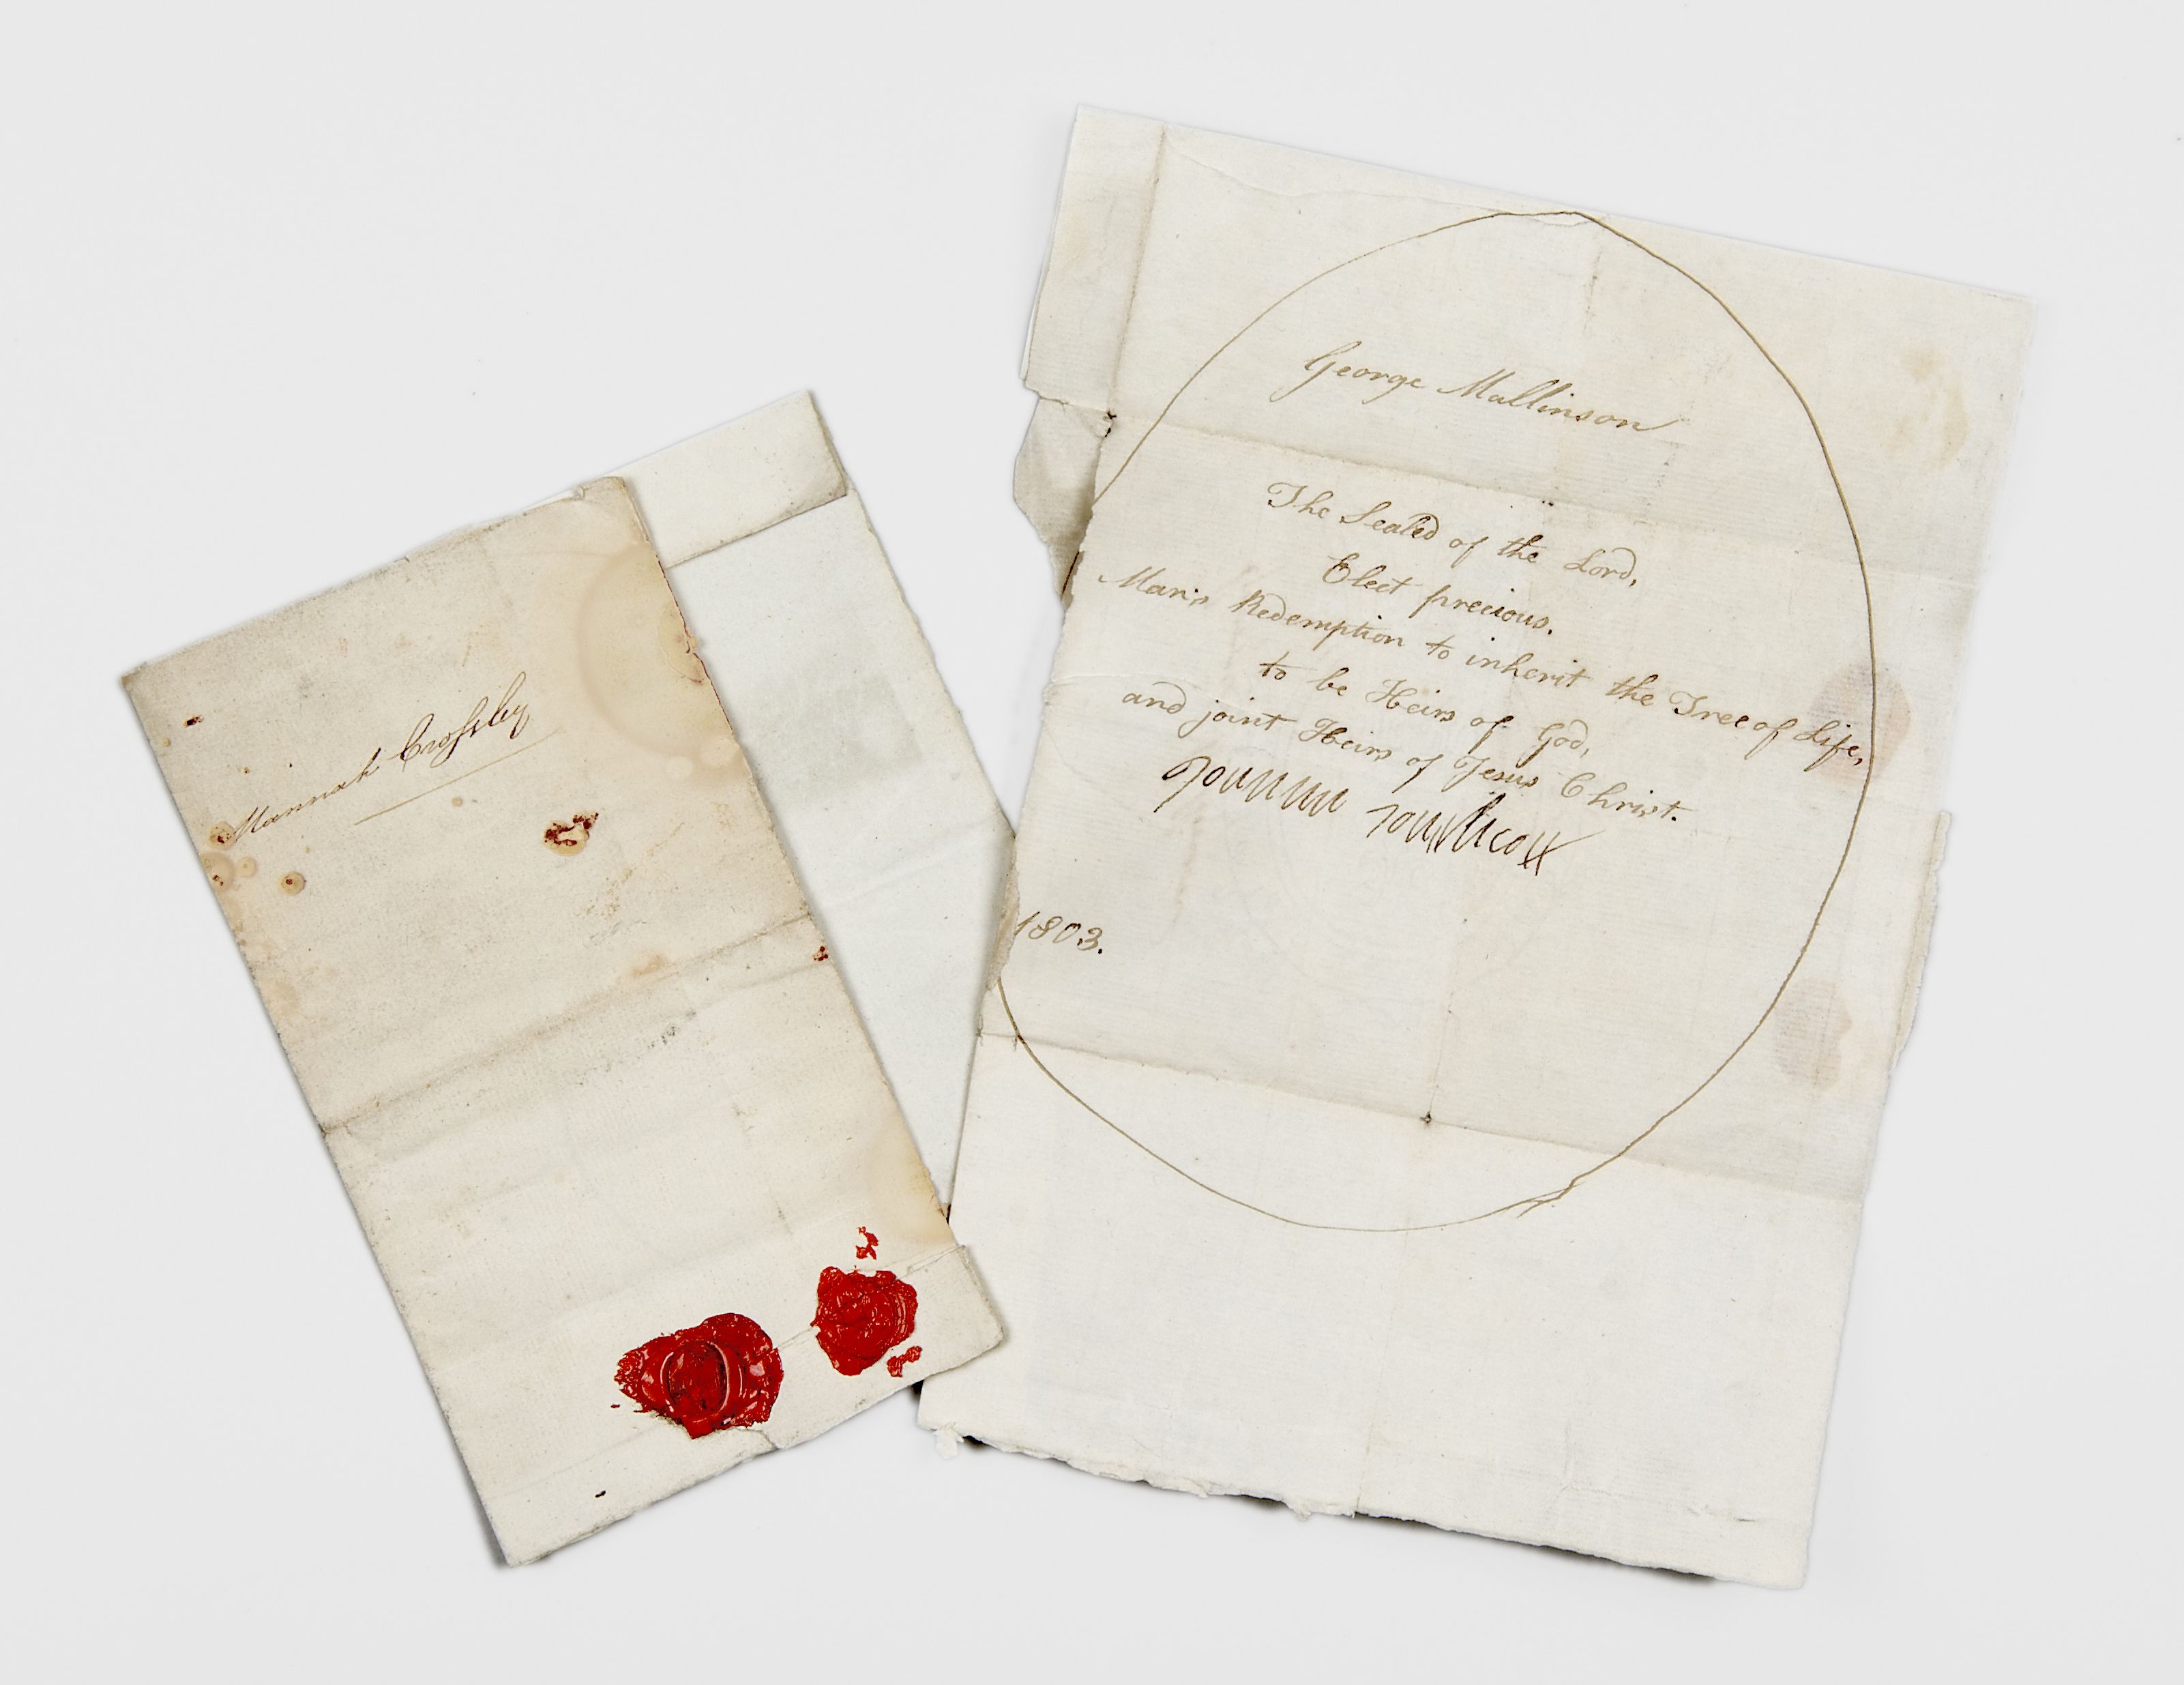 Hannah Croſsby
George Mallinson
The Sealed of the Lord,
Elect precious.
Man's Redemption to inherit the Tree of Life,
to be Heirs of God,
and joint Heirs of Jesus Christ.
Joanna Southcott
1803.